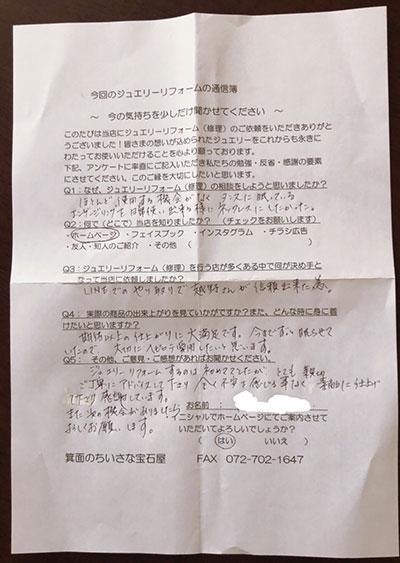 今回のジュエリーリフォームの通信簿
～ 今の気持ちを少しだけ聞かせてください ～
このたびは当店にジュエリーリフォーム（修理）のご依頼をいただきありがと
うございました！皆さまの想いが込められたジュエリーをこれからも永きに
わたってお使いいただけることを心より願っております。
下記、アンケートに率直にご記入いただき私たちの勉強・反省・感謝の要素
にさせてください。このご縁を大切にしたいと思います。
Q1：なぜ、ジュエリーリフォーム（修理）の相談をしようと思いましたか？
ほとんど使用する機会がなく タンスに眠っている
エンゲージリングを日常使い出来る様にネックレスにしたかった。
Q2：何で（どこで）当店を知りましたか？ （チェックをお願いします）
・ホームページ ・フェイスブック ・インスタグラム ・チラシ広告
・友人・知人のご紹介 ・その他（ ）
Q3：ジュエリーリフォーム（修理）を行う店が多くある中で何が決め手と
なって当店に依頼しましたか？
LINEでのやり取りで越野さんが信頼出来た為。
Q4： 実際の商品の出来上がりを見ていかがですか？また、どんな時に身に着
けたいと思いますか？
期待以上の仕上がりに大満足です。今までずい 眠らせて
いたので 大切にヘビロテ愛用したいと思います。
Q5： その他、ご意見・ご感想があればお聞かせください。
ジュエリーリフォームするのは初めてでしたが とても親切
ご丁寧にアドバイスして下さり 全く不安を感じる事なく 素敵に仕上げ
て下さり感謝しています。
また次の機会がありましたら
よろしくお願いします。
お名前：
イニシャルでホームページにてご案内させて
いただいてよろしいでしょうか？
（ はい いいえ ）
箕面のちいさな宝石屋 FAX 072-702-1647